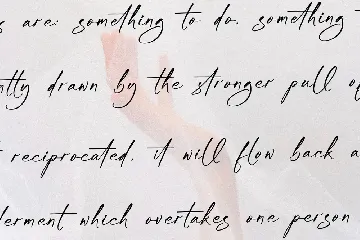 s are: something to do, something
ntly drawn by the stronger pull of
reciprocated, it will flow back a
derment which overtakes one person